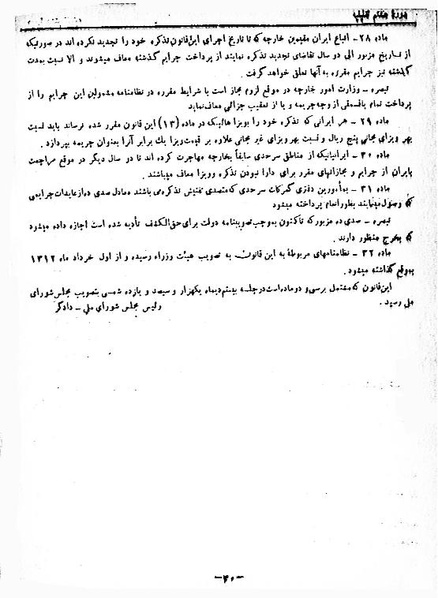 دورهٔ هشتم تقنینیه
ماده ۲۸ – اتباع ایران مقیمین خارجه که تا تاریخ اجرای این قانون تذکره خود را تجدید نکرده اند در صورتیکه
از تاریخ مزبور الی دو سال تقاضای تجدید تذکره نمایند از پرداخت جرایم گذشته معاف میشوند و الا نسبت بمدت
گذشته نیز جرایم مقرره به آنها تعلق خواهد گرفت.
تبصره – وزارت امور خارجه در موقع لزوم مجاز است با شرایط مقرره در نظامنامه مشمولین این جرایم را از
پرداخت تمام یا قسمتی از وجه جریمه و یا از تعقیب جزائی معاف نماید
ماده ۲۹ – هر ایرانی که تذکره خود را بویزا هائیکه در ماده (۱۳) این قانون مقرر شده نرساند باید نسبت
بهر ویزای مجانی پنج ریال و نسبت بهر ویزای غیر مجانی علاوه بر قیمت ویزا یک برابر آنرا بعنوان جریمه بپردازد.
ماده ۳۰ – ایرانیانیکه از مناطق سرحدی سابقاً بخارجه مهاجرت کرده اند تا دو سال دیگر در موقع مراجعت
بایران از جرایم و مجازاتهای مقرر برای دارا نبودن تذکره و ویزا معاف میباشند.
ماده ۳۱ – بمأمورین دفتری گمرکات سرحدی که متصدی تفتیش تذکره می باشند معادل صدی ده از عایدات جرایمی
که وصول مینمایند بطور انعام پرداخته میشود
تبصره – صدی ده مزبور که تاکنون بموجب تصویبنامه دولت برای حق الکشف تأدیه شده است اجازه داده میشود
بخرج منظور دارند.
ماده ۳۲ – نظامنامهای مربوطه به این قانون به تصویب هیئت وزراء رسیده و از اول خرداد ماه ۱۳۱۲
بموقع گذاشته میشود.
این قانون که مشتمل بر سی و دو ماده است در جلسه بیستم دیماه یکهزار و سیصد و یازده شمسی بتصویب مجلس شورای
ملی رسید.
رئیس مجلس شورای ملی – دادگر
–۴۰–